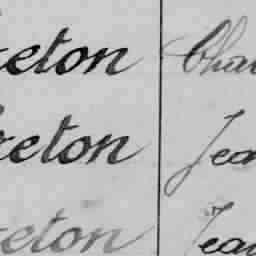 eton Cha
reton Jea
eton Jea